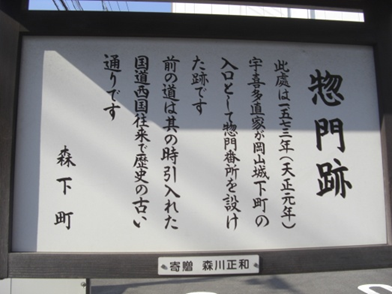 惣門跡
此處は一五七三年(天正元年)
宇喜多直家が岡山城下町の
入口として惣門番所を設け
た跡です
前の道は其の時引入れた
国道西国往来で歴史の古い
通りです
森下町
寄贈 森川正和